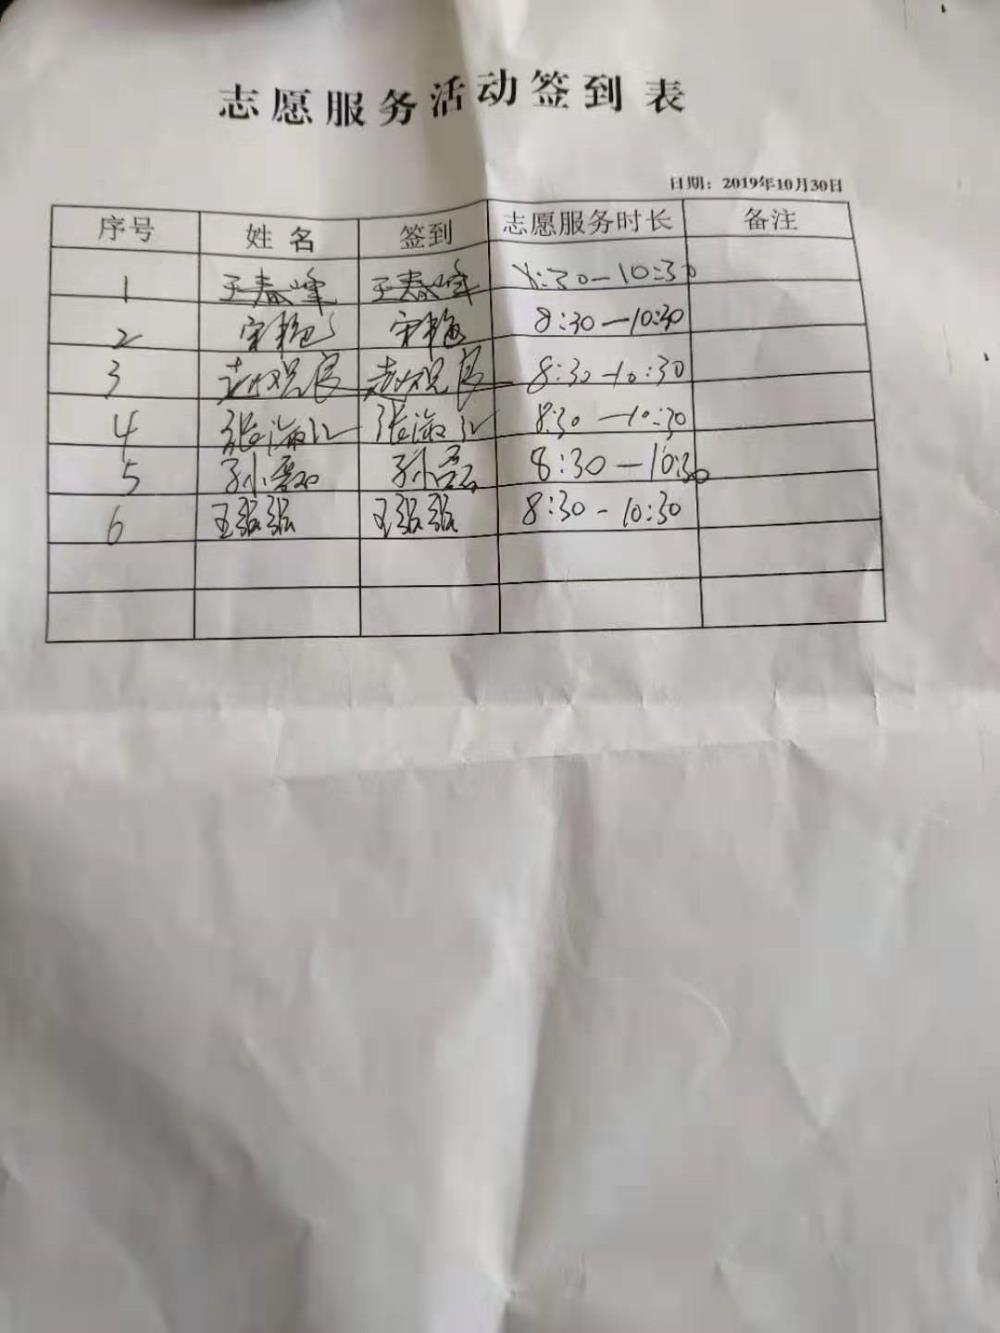 志愿服务活动签到表
日期：2019年10月30日
序号 姓名 签到 志愿服务时长 备注
1 于春峰 于春峰 8:30-10:30
2 宋艳 宋艳 8:30-10:30
3 8:30-10:30
4 8:30-10:30
5 8:30-10:30
6 王强强 王强强 8:30-10:30